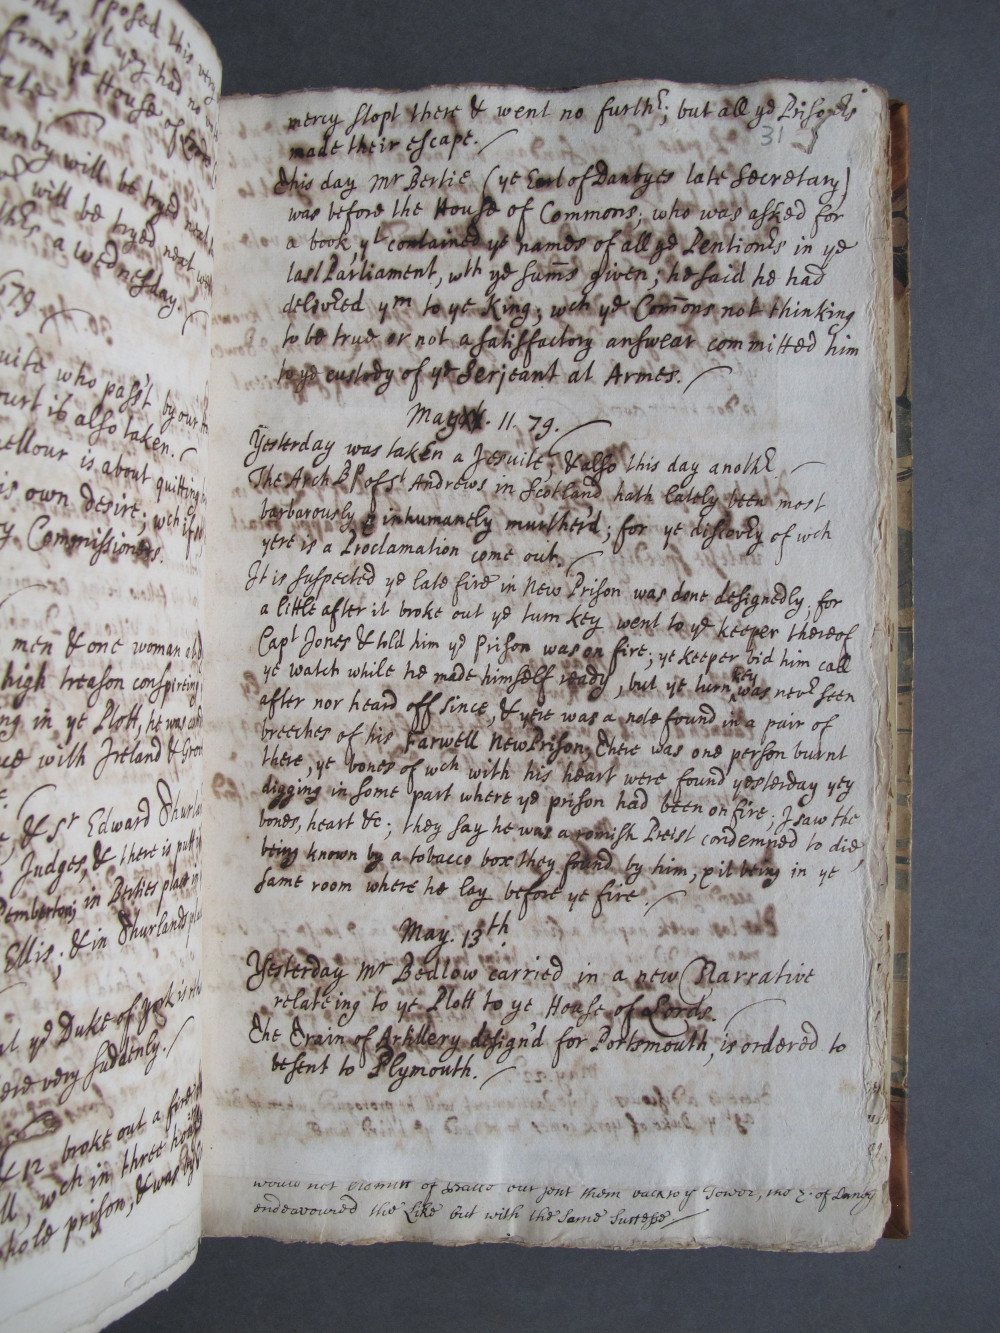 pposed this very
, yt yey had no
from ye House of Lords
anby will be tryed next
will be tryed next
a wednesday.
79.
uite who pass't by our
ourt is also taken.
cellour is about quitting
is own desire; wch if
y Commissioners.
men & one woman
high treason conspireing
ng in ye Plott, he was
with Ireland &
& Sr Edward Thurland
Judges, & there is putt
Pemberton; in Berties place
Ellis; & in Thurlands
ye Duke of York is
very suddenly.
12 broke out a fire
wch in three
hole prison, & was
mercy stopt there & went no furthr; but all ye Prisoners
31
made their escape.
This day Mr Bertie (ye Earl of Danbyes late Secretary)
was before the House of Commons; who was asked for
a book yt contained ye names of all ye Pentioners in ye
last Parliament, wth ye sums given; he said he had
delivered ym to ye King; wch ye Comons not thinking
to be true or not a satisfactory answear committed him
to ye custody of ye Serjeant at Armes.
May. 11. 79.
Yesterday was taken a Jesuite; & also this day anothr.
The Arch Bp of St Andrews in Scotland hath lately been most
barbarously & inhumanely murther'd; for ye discovery of wch
yere is a Proclamation come out.
It is suspected ye late fire in New Prison was done designedly; for
a little after it broke out ye turn key went to ye keeper thereof
Capt Jones & told him ye Prison was on fire; ye keeper bid him call
ye watch while he made himself ready, but ye turn key was nevr seen
after nor heard off since, & yere was a note found in a pair of
breeches of his Farwell New Prison, there was one person burnt
there, ye bones of wch with his heart were found yesterday yey
digging in some part where ye prison had been on fire; I saw the
bones, heart &c; they say he was a romish Preist condemned to die,
being known by a tobacco box they found by him, & it being in ye
same room where he lay before ye fire.
May. 13th.
Yesterday Mr Bedlow carried in a new Narrative
relateing to ye Plott to ye House of Lords.
The Train of Artillery design'd for Portsmouth, is ordered to
be sent to Plymouth.
would not of but sent them back to ye Tower, the E. of Danby
endeavoured the Like but with the same suttesse